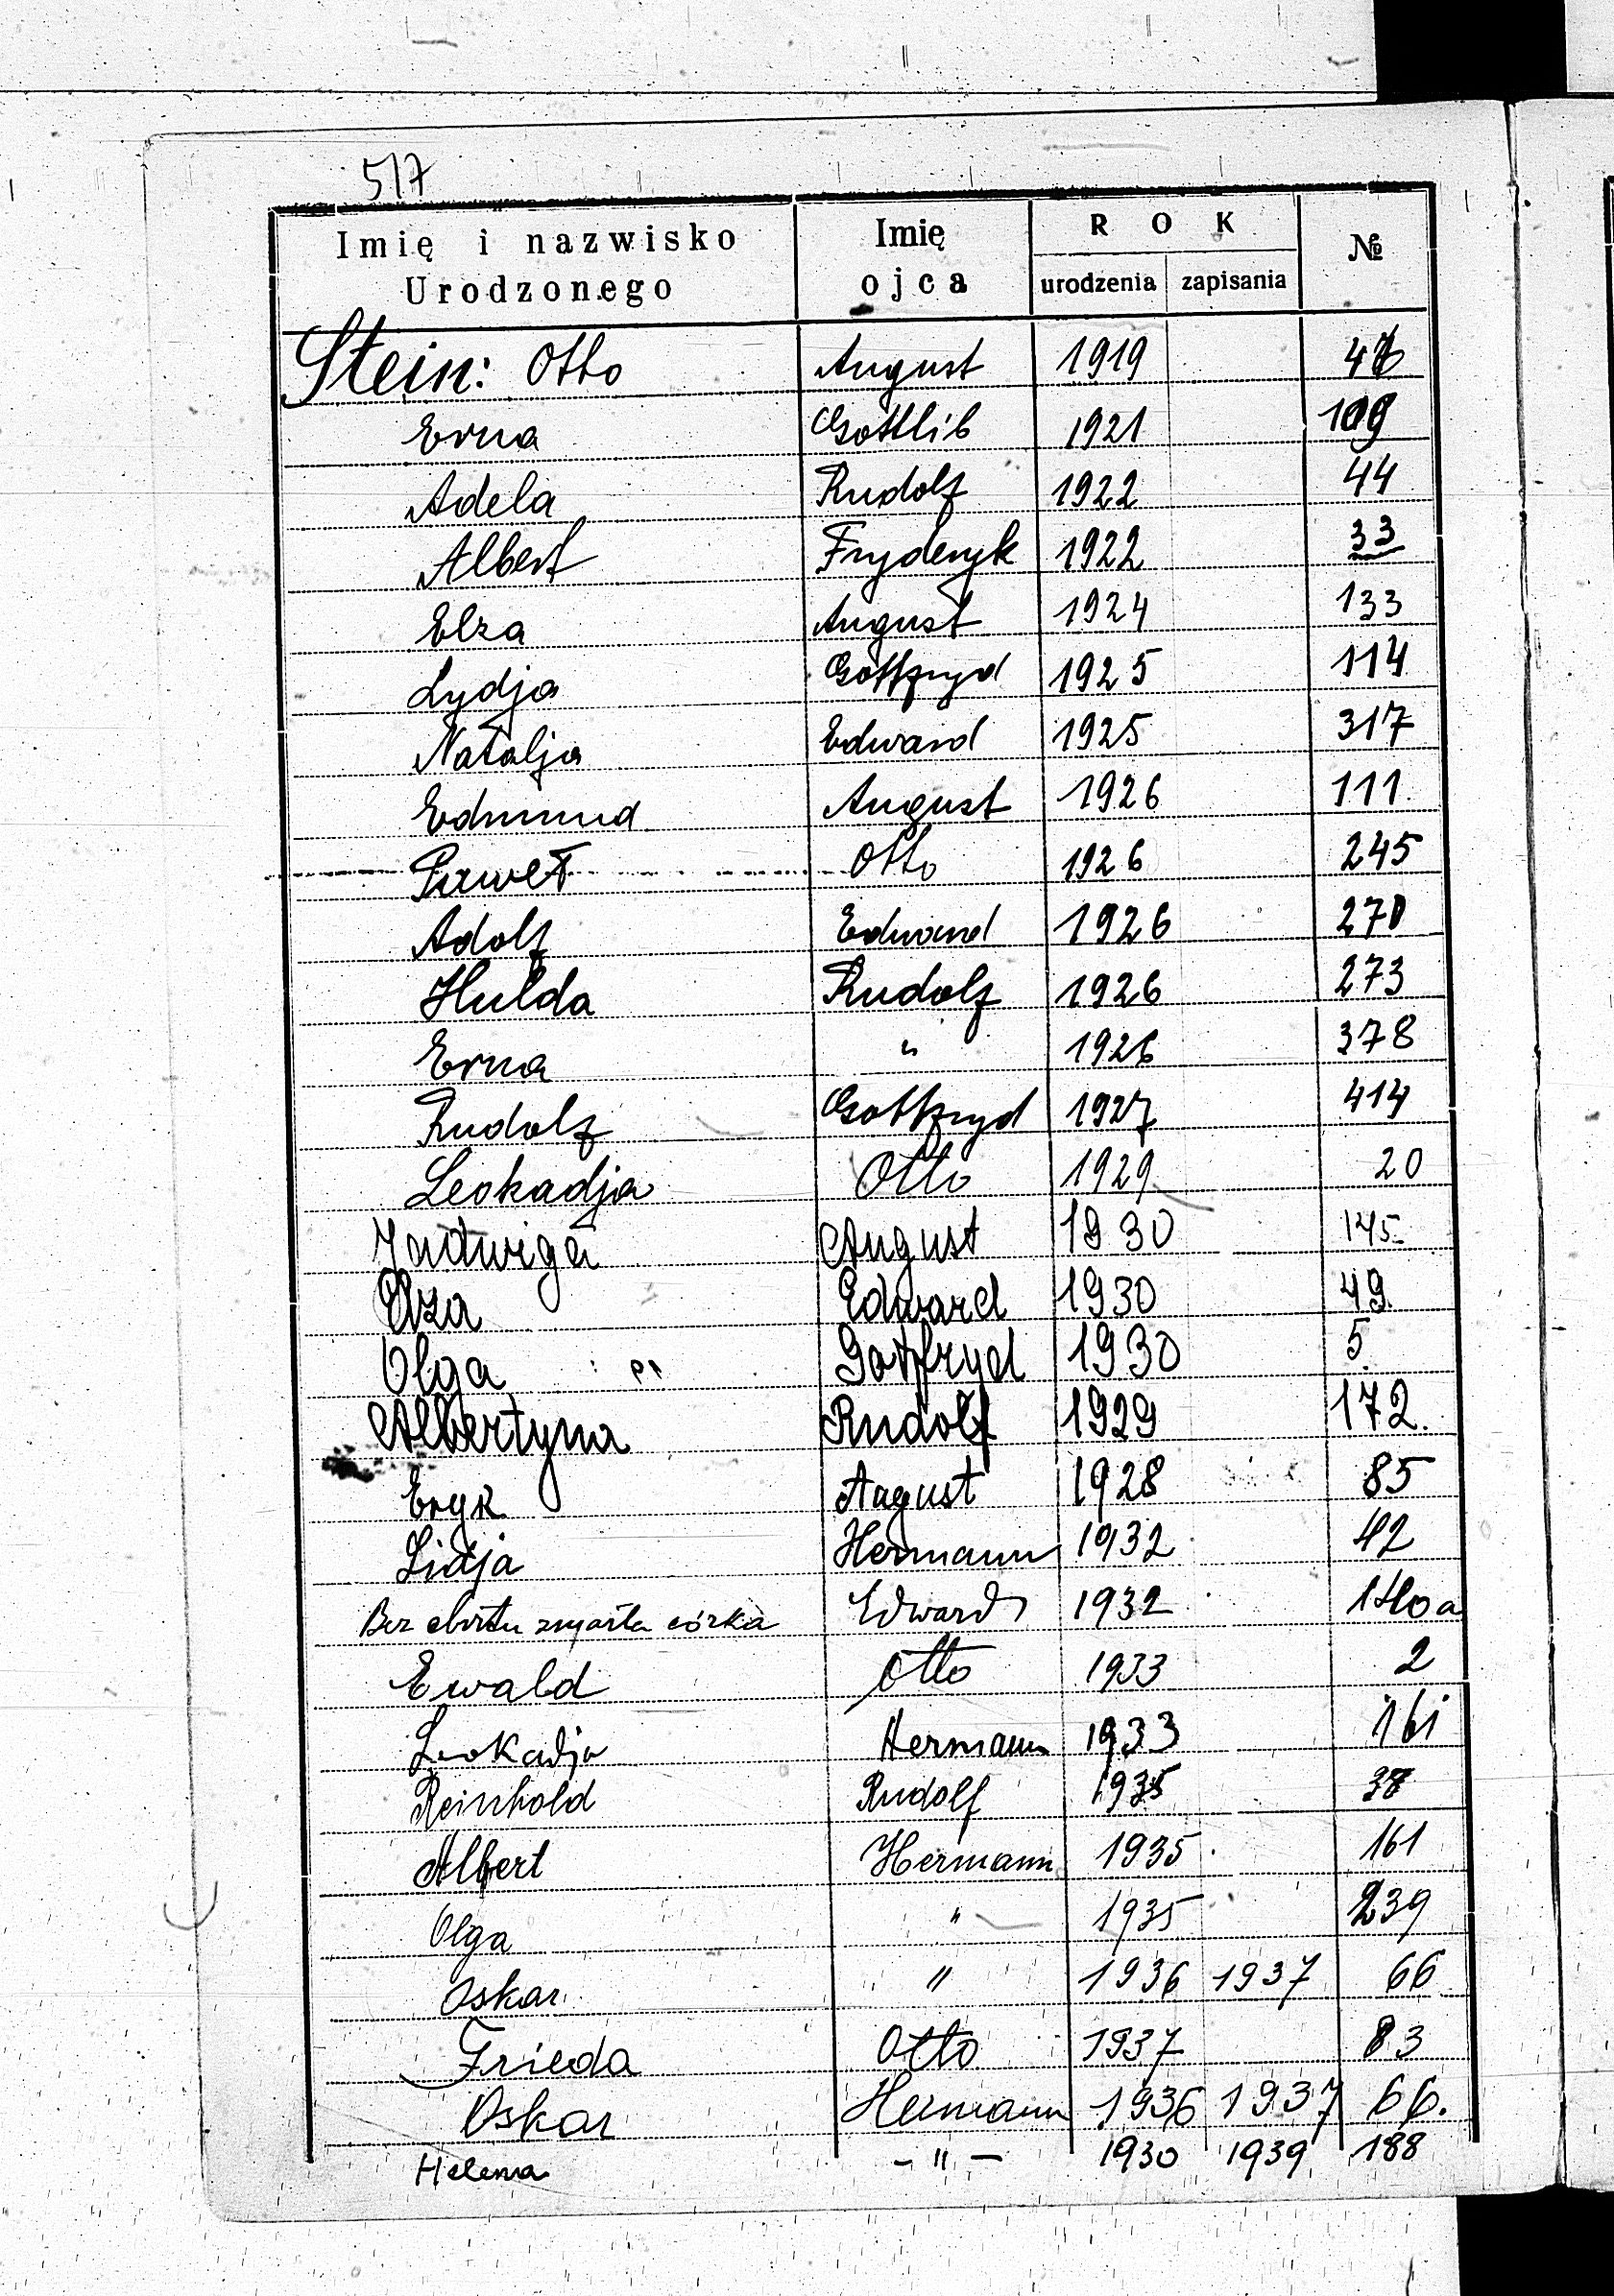 517
Imię i nazwisko Urodzonego Imię ojca ROK urodzenia zapisania №
Stein: Otto August 1919
Erna Gottlib 1921 109
Adela Rudolf 1922 44
Albert Fryderyk 1922 33
Elza August 1924 133
Lydja Gottfryd 1925 114
Natalja Edward 1925 317
Edmund August 1926 111
Paweł Otto 1926 245
Adolf Edward 1926 270
Hulda Rudolf 1926 273
Erna " 1926 378
Rudolf Gottfryd 1927 414
Leokadja Otto 1929 20
Jadwiga August 1930 145
Elza Edward 1930 49
Olga Gottfryd 1930 5
Albertyna Rudolf 1929 172.
Eryk August 1928 85
Lidja Hermann 1932 42
Bez chrztu zmarła córka Edward 1932 140a
Ewald Otto 1933 2
Leokadja Hermann 1933 161
Reinhold Rudolf 1935
Albert Hermann 1935 161
Olga " 1935 239
Oskar " 1936 1937 66
Frieda Otto 1937 83
Oskar Hermann 1936 1937 66.
Helena - " - 1930 1939 188